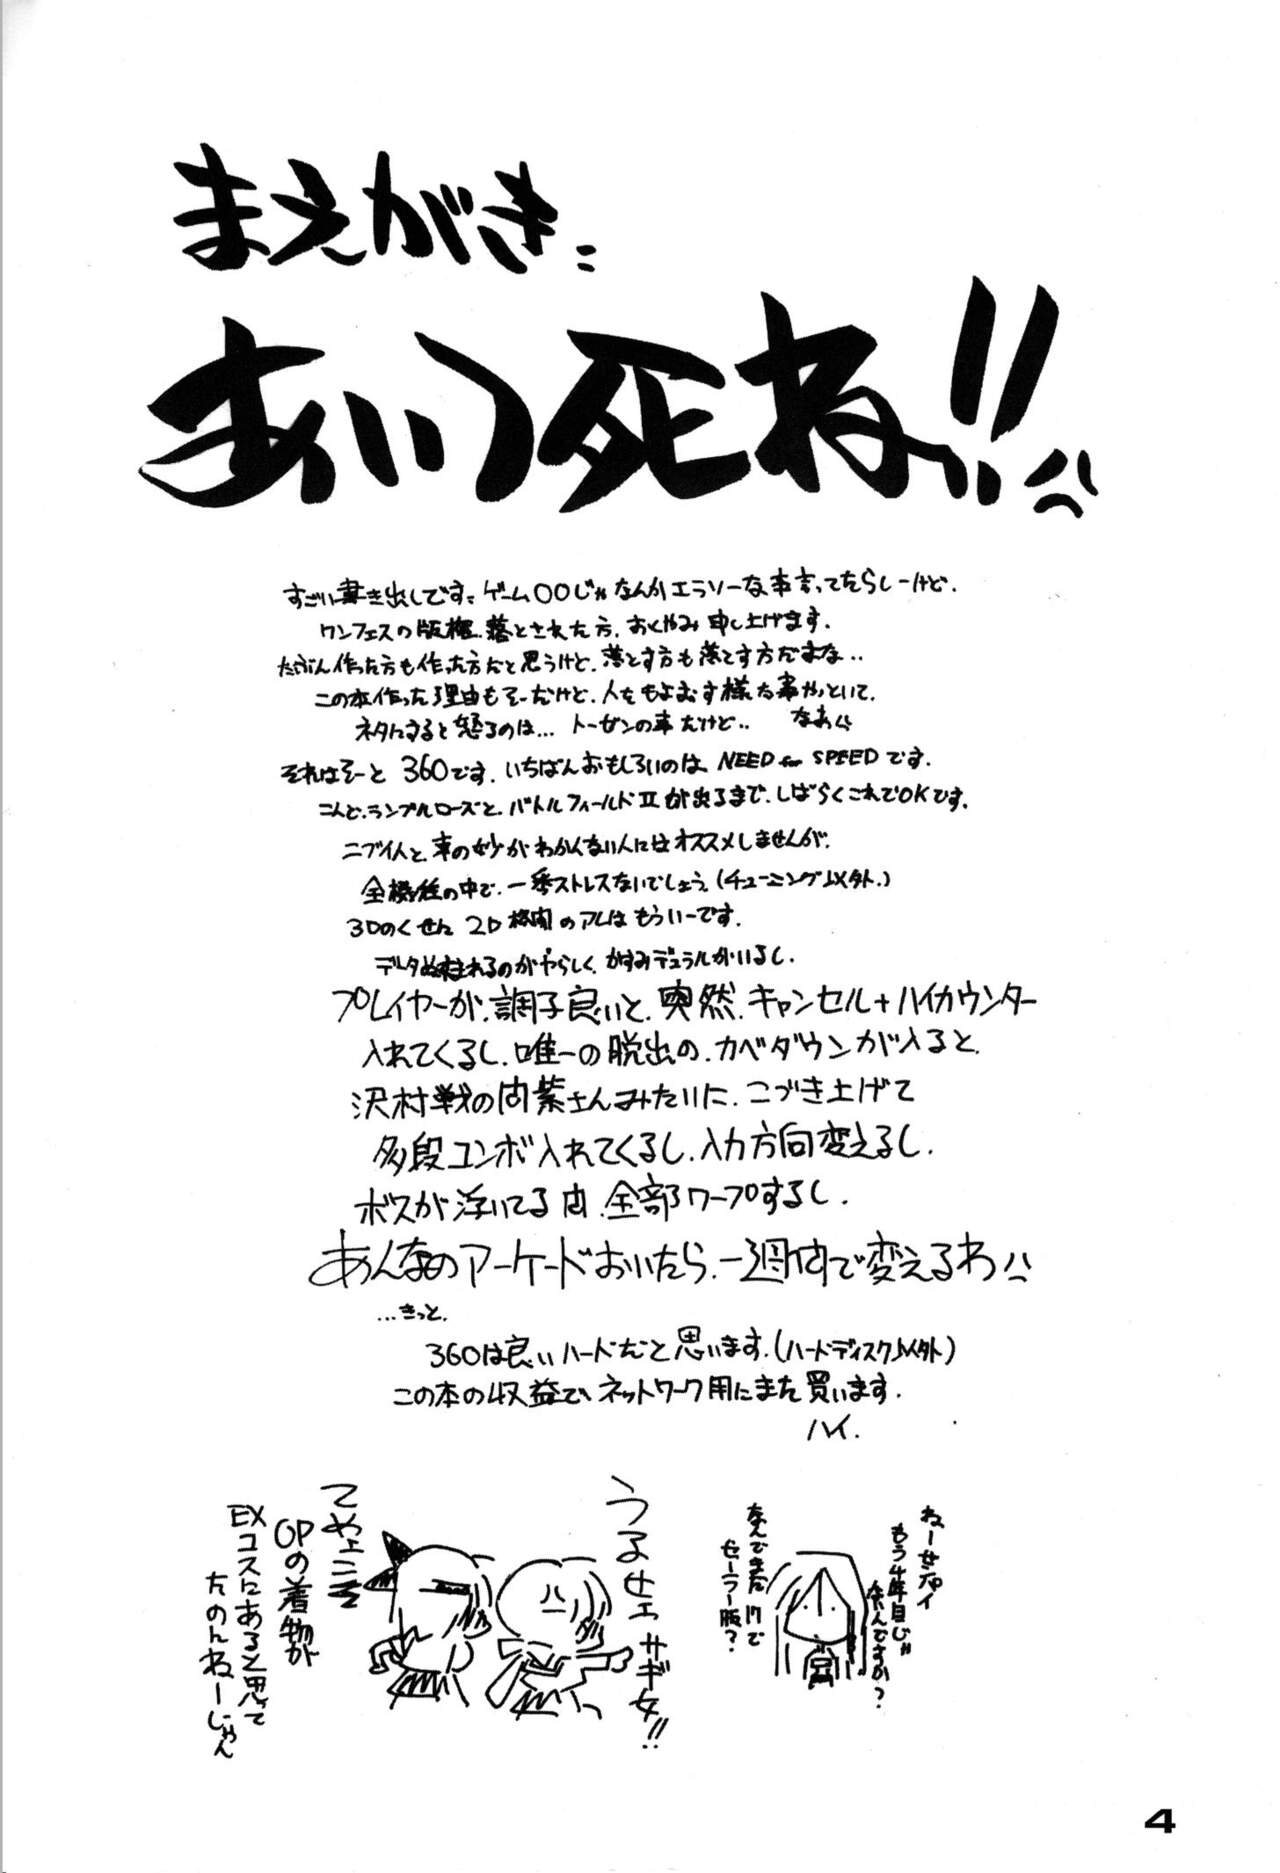 まえがき:
あいつ死ね!!
すごい書き出しです。ゲーム〇〇じゃなんかエラソーな事言ってたらしーけど、
ワンフェスの版権、落とされた方、おくやみ申し上げます。
たぶん作った方も作った方だと思うけど、落とす方も落とす方だよな‥
この本作った理由もそーだけど、人をもよおす様な事やっといて、
ネタにすると怒るのは… トーゼンの事だけど‥ なあ
それはそーと 360です。いちばんおもしろいのは NEED for SPEEDです。
こんど、ランブルローズと、バトルフィールドⅡが出るまで、しばらくこれでOKです。
ニブイ人と、車の妙がわかんない人にはオススメしませんが、
全機種の中で、一番ストレスないでしょう。(チューニング以外。)
3Dのくせに 2D格闘のアレはもういーです。
データぬすまれるのがやらしく、かすみデュラルがいるし、
プレイヤーが、調子良いと、突然、キャンセル+ハイカウンター
入れてくるし、唯一の脱出の、カベダウンが入ると、
沢村戦の間柴さんみたいに、こづき上げて
多段コンボ入れてくるし、入力方向変えるし、
ボスが浮いてる間、全部ワープするし、
あんなのアーケードおいたら、一週間で変えるわ
…きっと、
360は良いハードだと思います。(ハードディスク以外)
この本の収益で、ネットワーク用にまた買います。
ハイ.
ねーせんパイ
もう4年目じゃ
ないですか?
なんでまた17で
セーラー服?
うるせェ サギ女!!
てやェ
OPの着物が
EXコスにあると思って
たのんねーじゃん
4